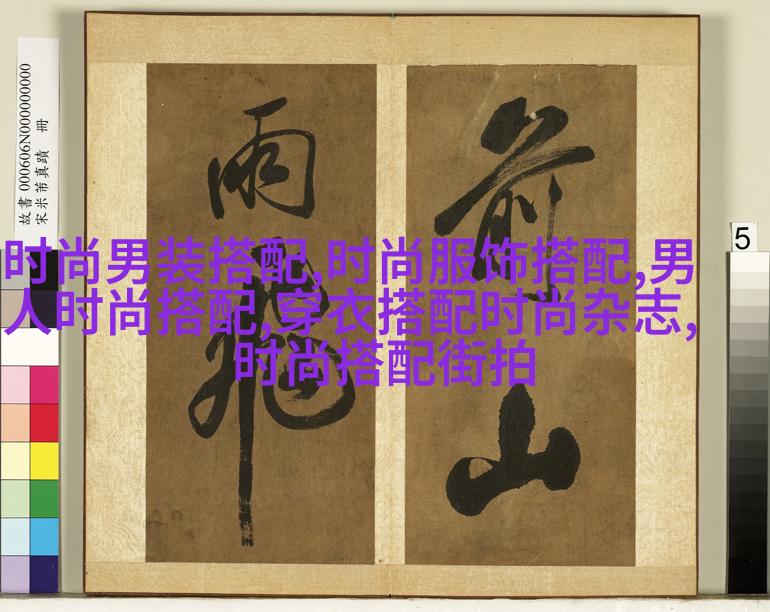 故書 000606N000000000
宋米芾真蹟 冊
前山
雨飛
时尚男装搭配,时尚服饰搭配,男
人时尚搭配,穿衣搭配时尚杂志,
时尚搭配街拍
5